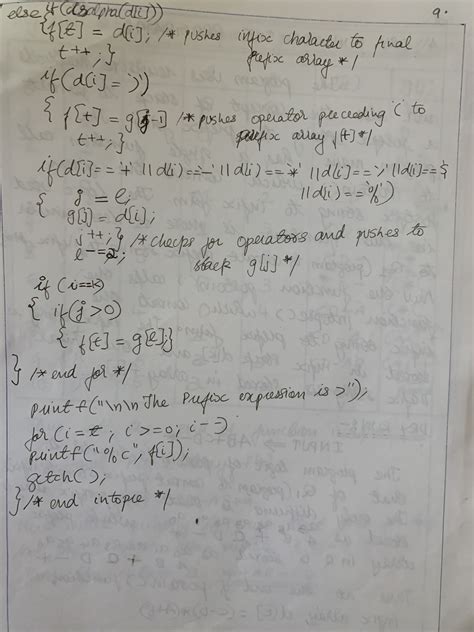 9.
else if(isalpha(d[i]))
{f[t] = d[i]; /* pushes infix character to final
t++;} prefix array */
if(d[i]= ')')
{ f[t] = g[j-1] /* pushes operator preceeding '(' to
t++;} prefix array f[t] */
if(d[i]=='+' ||d[i]=='-' ||d[i]=='*' ||d[i]=='/' ||d[i]==$
||d[i]=='%')
{ j = l;
g[j] = d[i];
j++;} /*checks for operators and pushes to
l-=2; stack g[j] */
if (i==k)
{ if(j>0)
{ f[t] = g[l];}
} /* end for */
printf("\n\n The Prefix expression is >");
for(i=t; i>=0; i--)
printf("%c", f[i]);
getch();
} /* end intopre */